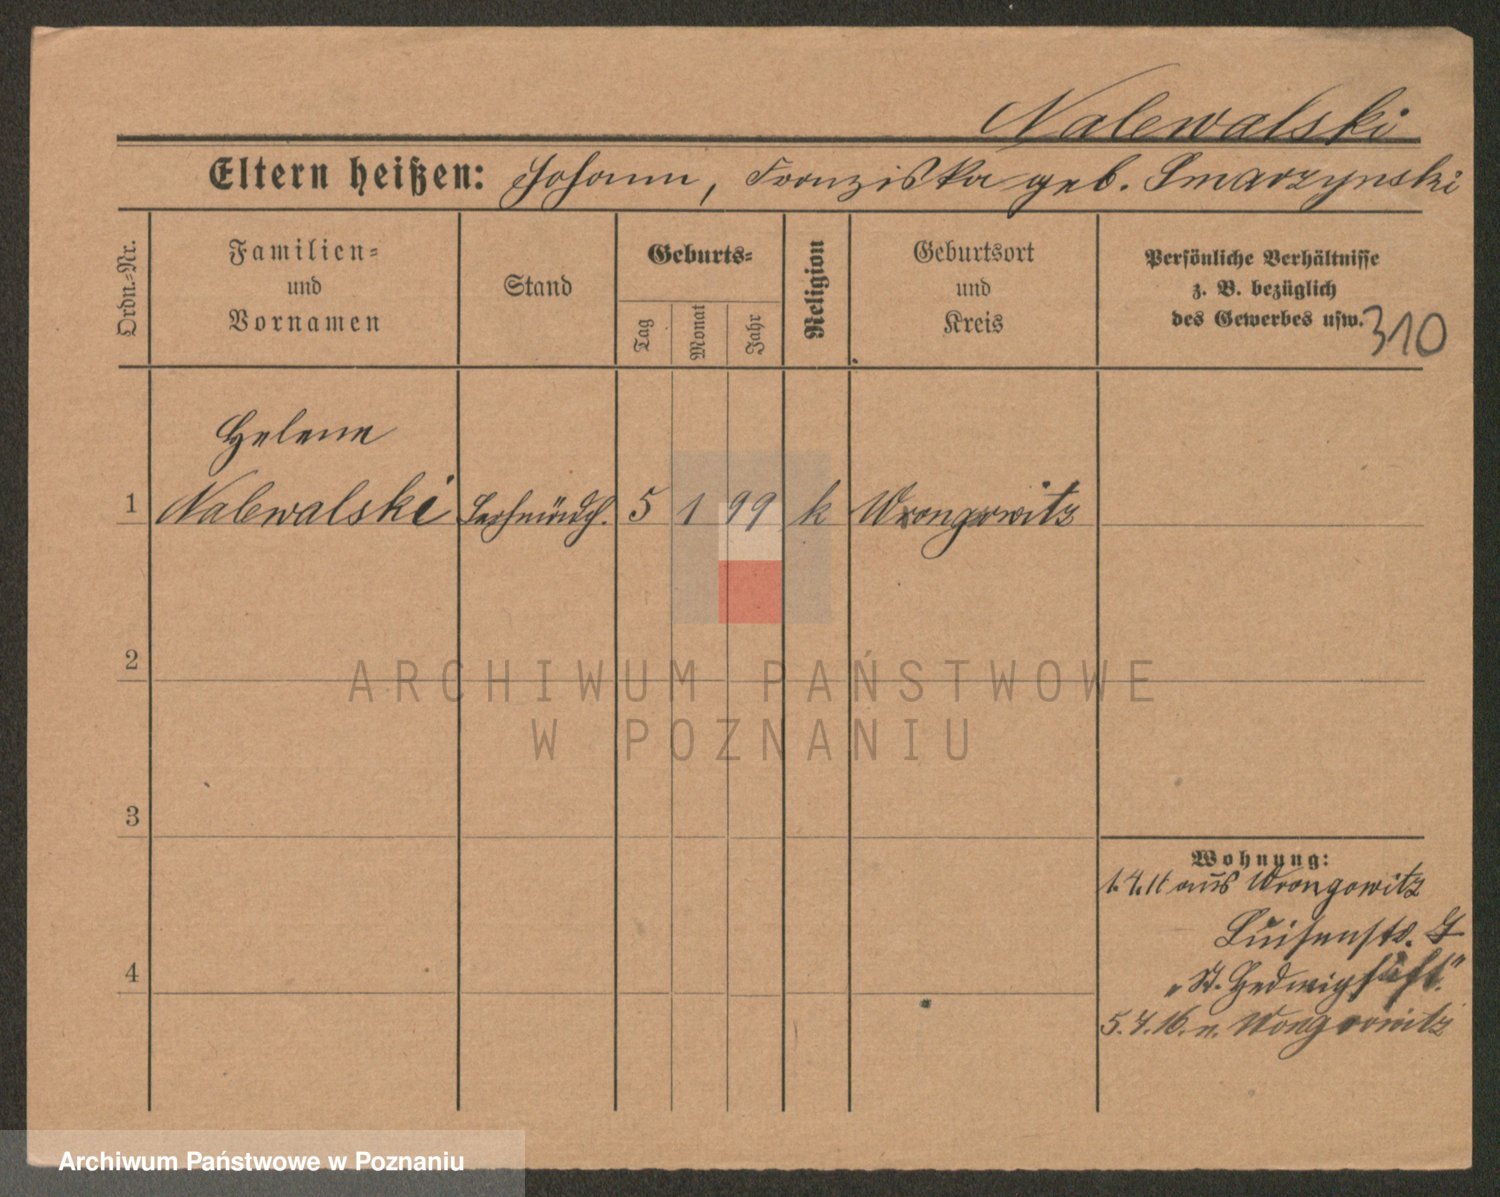 Nalewalski
Eltern heißen: Johann, Franziska geb. Smarzynski
Ordn.-Nr.
Familien-
und
Vornamen
Stand
Geburts-
Tag
Monat
Jahr
Religion
Geburtsort
und
Kreis
Persönliche Verhältnisse
z. B. bezüglich
des Gewerbes usw.
310
Helene
1 Nalewalski 5 1 99 k Wrongowitz
2
3
4
Wohnung:
aus Wrongowitz
Luisenstr.
"St. Hedwigstift."
5.7.16. n. Wongrowitz
ARCHIWUM PAŃSTWOWE
W POZNANIU
Archiwum Państwowe w Poznaniu